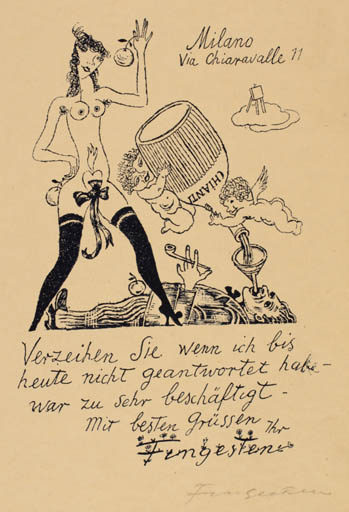 Milano
Via Chiaravalle 11
CHIANTI
Verzeihen Sie wenn ich bis
heute nicht geantwortet habe -
war zu sehr beschäftigt -
Mit besten Grüssen Ihr
Fingesten
Fingesten